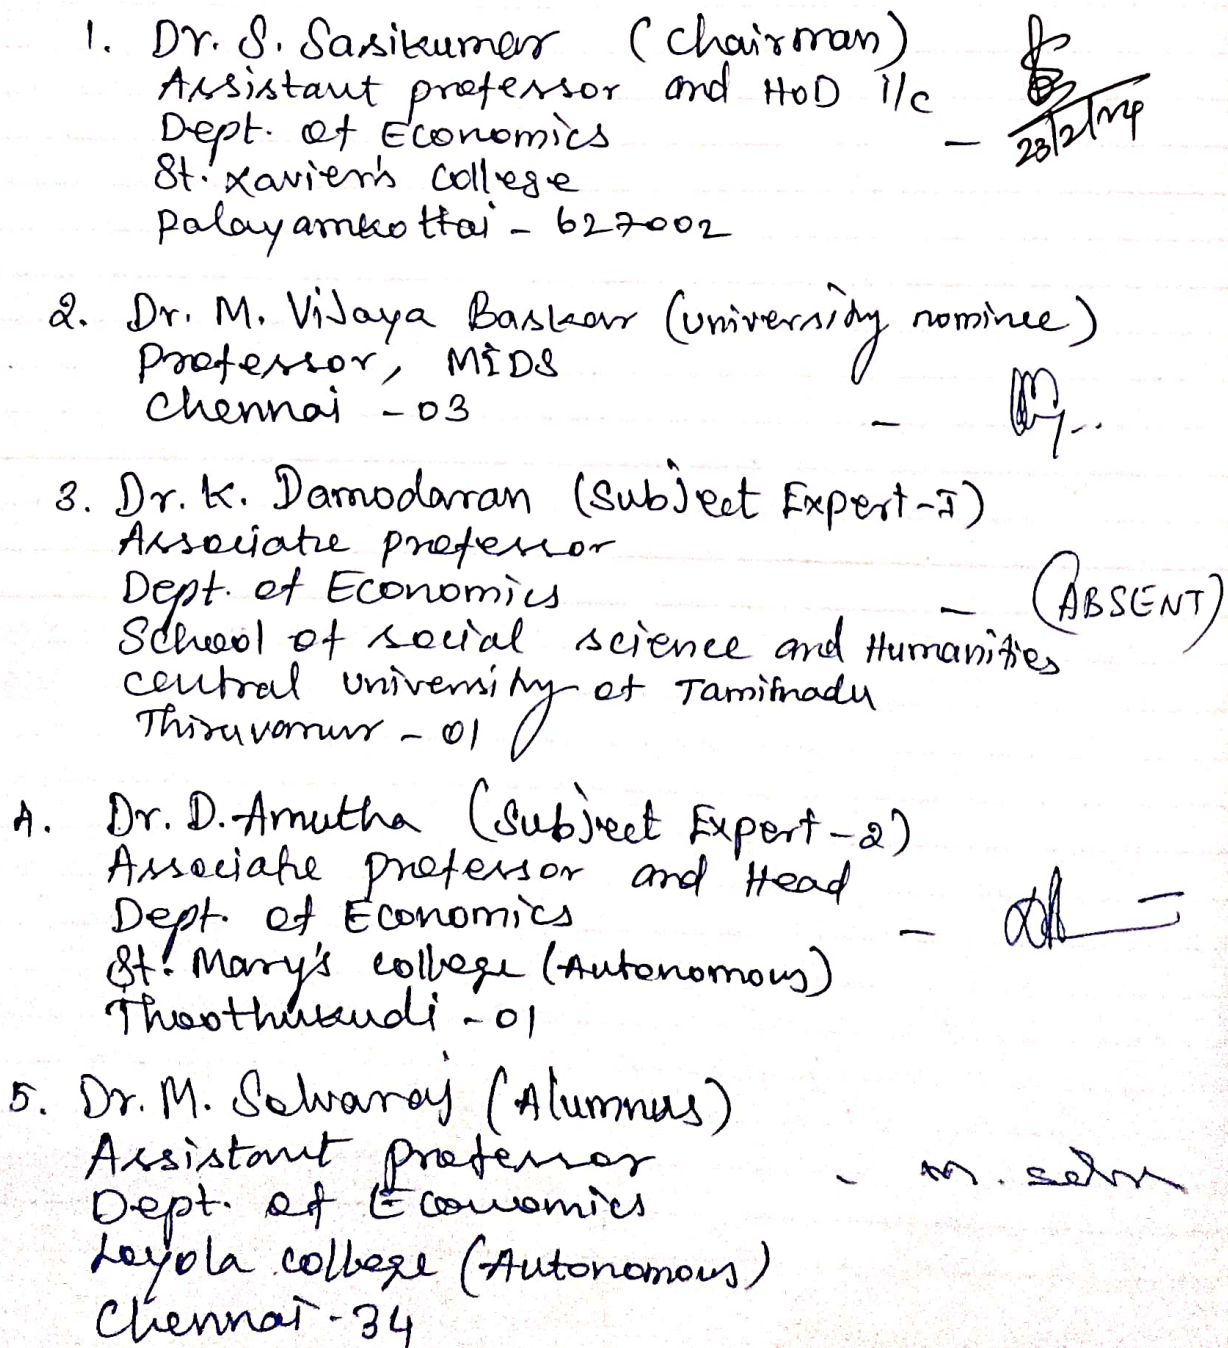 1. Dr. S. Sasikumar (Chairman)
Assistant professor and HoD i/c
Dept. of Economics
St. Xavier's college
Palayamkottai - 627002
- 23/2/24
2. Dr. M. Vijaya Baskar (University nominee)
Professor, MIDS
Chennai - 03 -
3. Dr. K. Damodaran (Subject Expert-I)
Associate professor
Dept. of Economics - (ABSENT)
School of social science and Humanities
central University of Tamilnadu
Thiruvarur - 01
4. Dr. D. Amutha (Subject Expert-2)
Associate professor and Head
Dept. of Economics -
St. Mary's college (Autonomous)
Thoothukudi - 01
5. Dr. M. Selvaraj (Alumnus)
Assistant professor - M. Selva
Dept. of Economics
Loyola college (Autonomous)
Chennai - 34